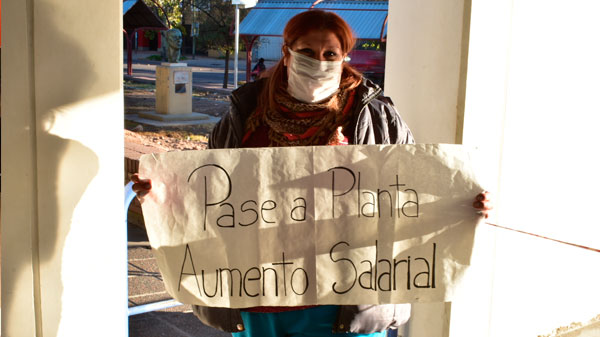 Pase a Planta
Aumento Salarial